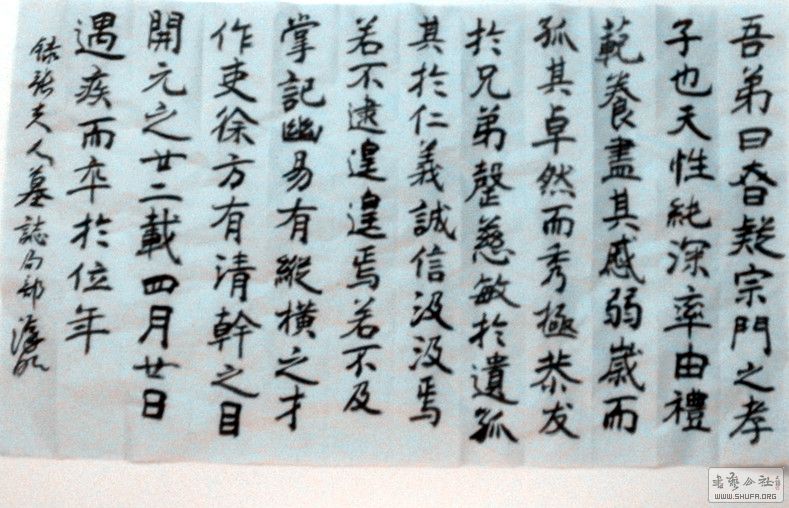 吾弟曰昏疑宗門之孝
子也天性純深率由禮
範養盡其慼弱歲而
孤其卓然而秀極恭友
於兄弟罄慈敏於遺孤
其於仁義誠信汲汲焉
若不逮遑遑焉若不及
掌記幽易有縱橫之才
作吏徐方有清幹之目
開元之廿二載四月廿日
遇疾而卒於位年
錄張夫人墓誌局部
WWW.SHUFA.ORG